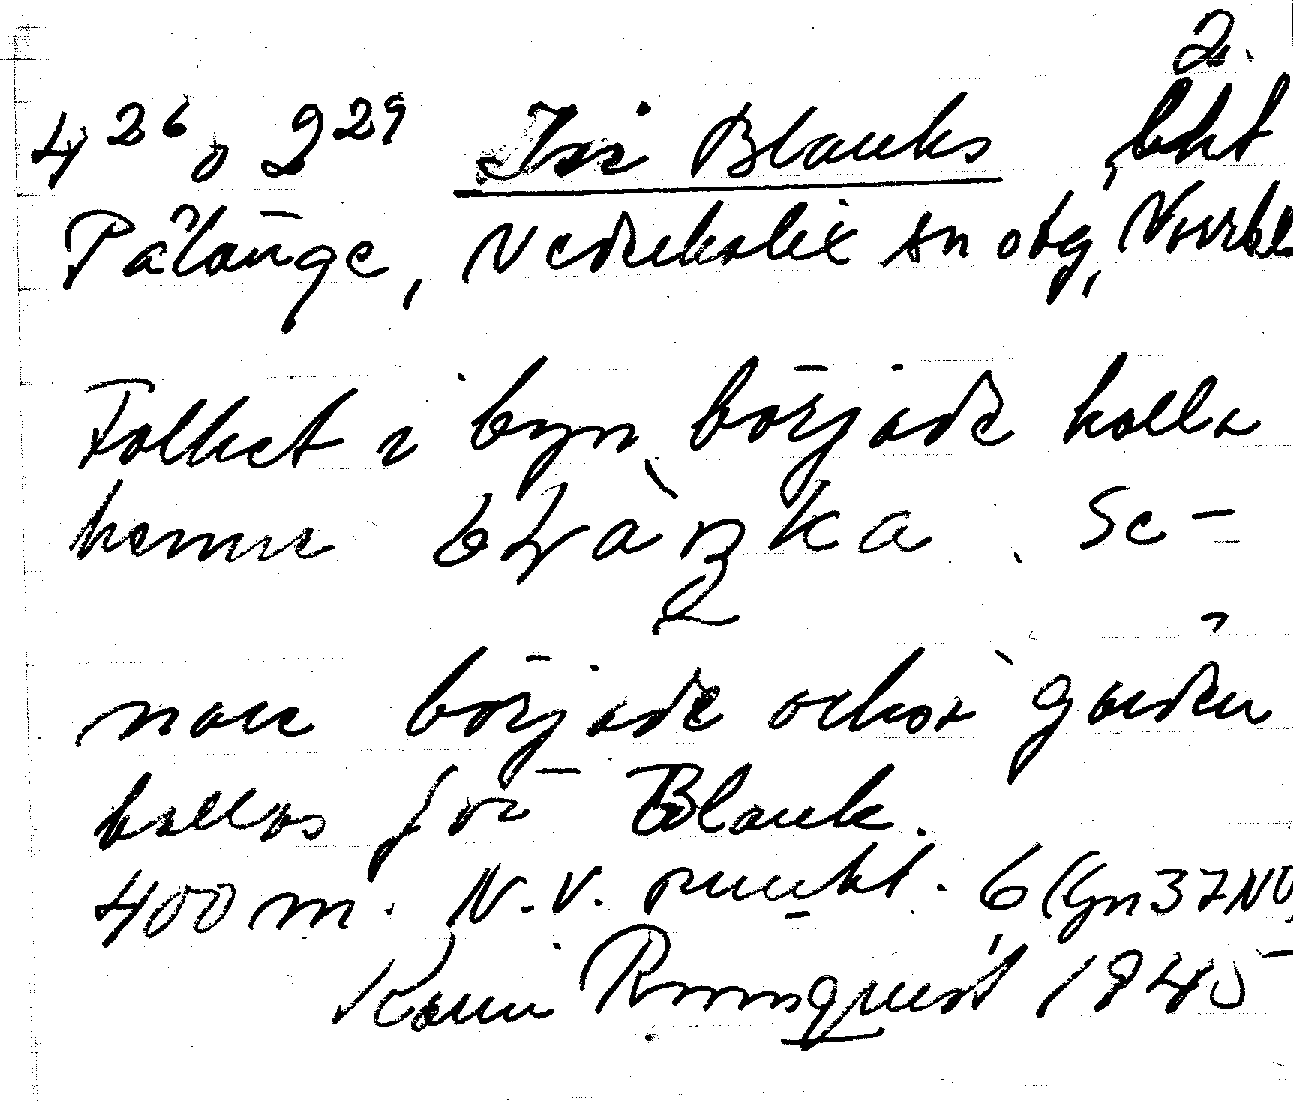 2.
4²⁶ o 2²⁹ Blanks, bht
Pålänge, Nederkalix sn otg, Norrb
Folket i byn började kalla
henne Se-
nare började också gården
kallas för Blank.
400 m. N.V. punkt. 6 (Gn 37 NV)
Karin Rönnquist 1945